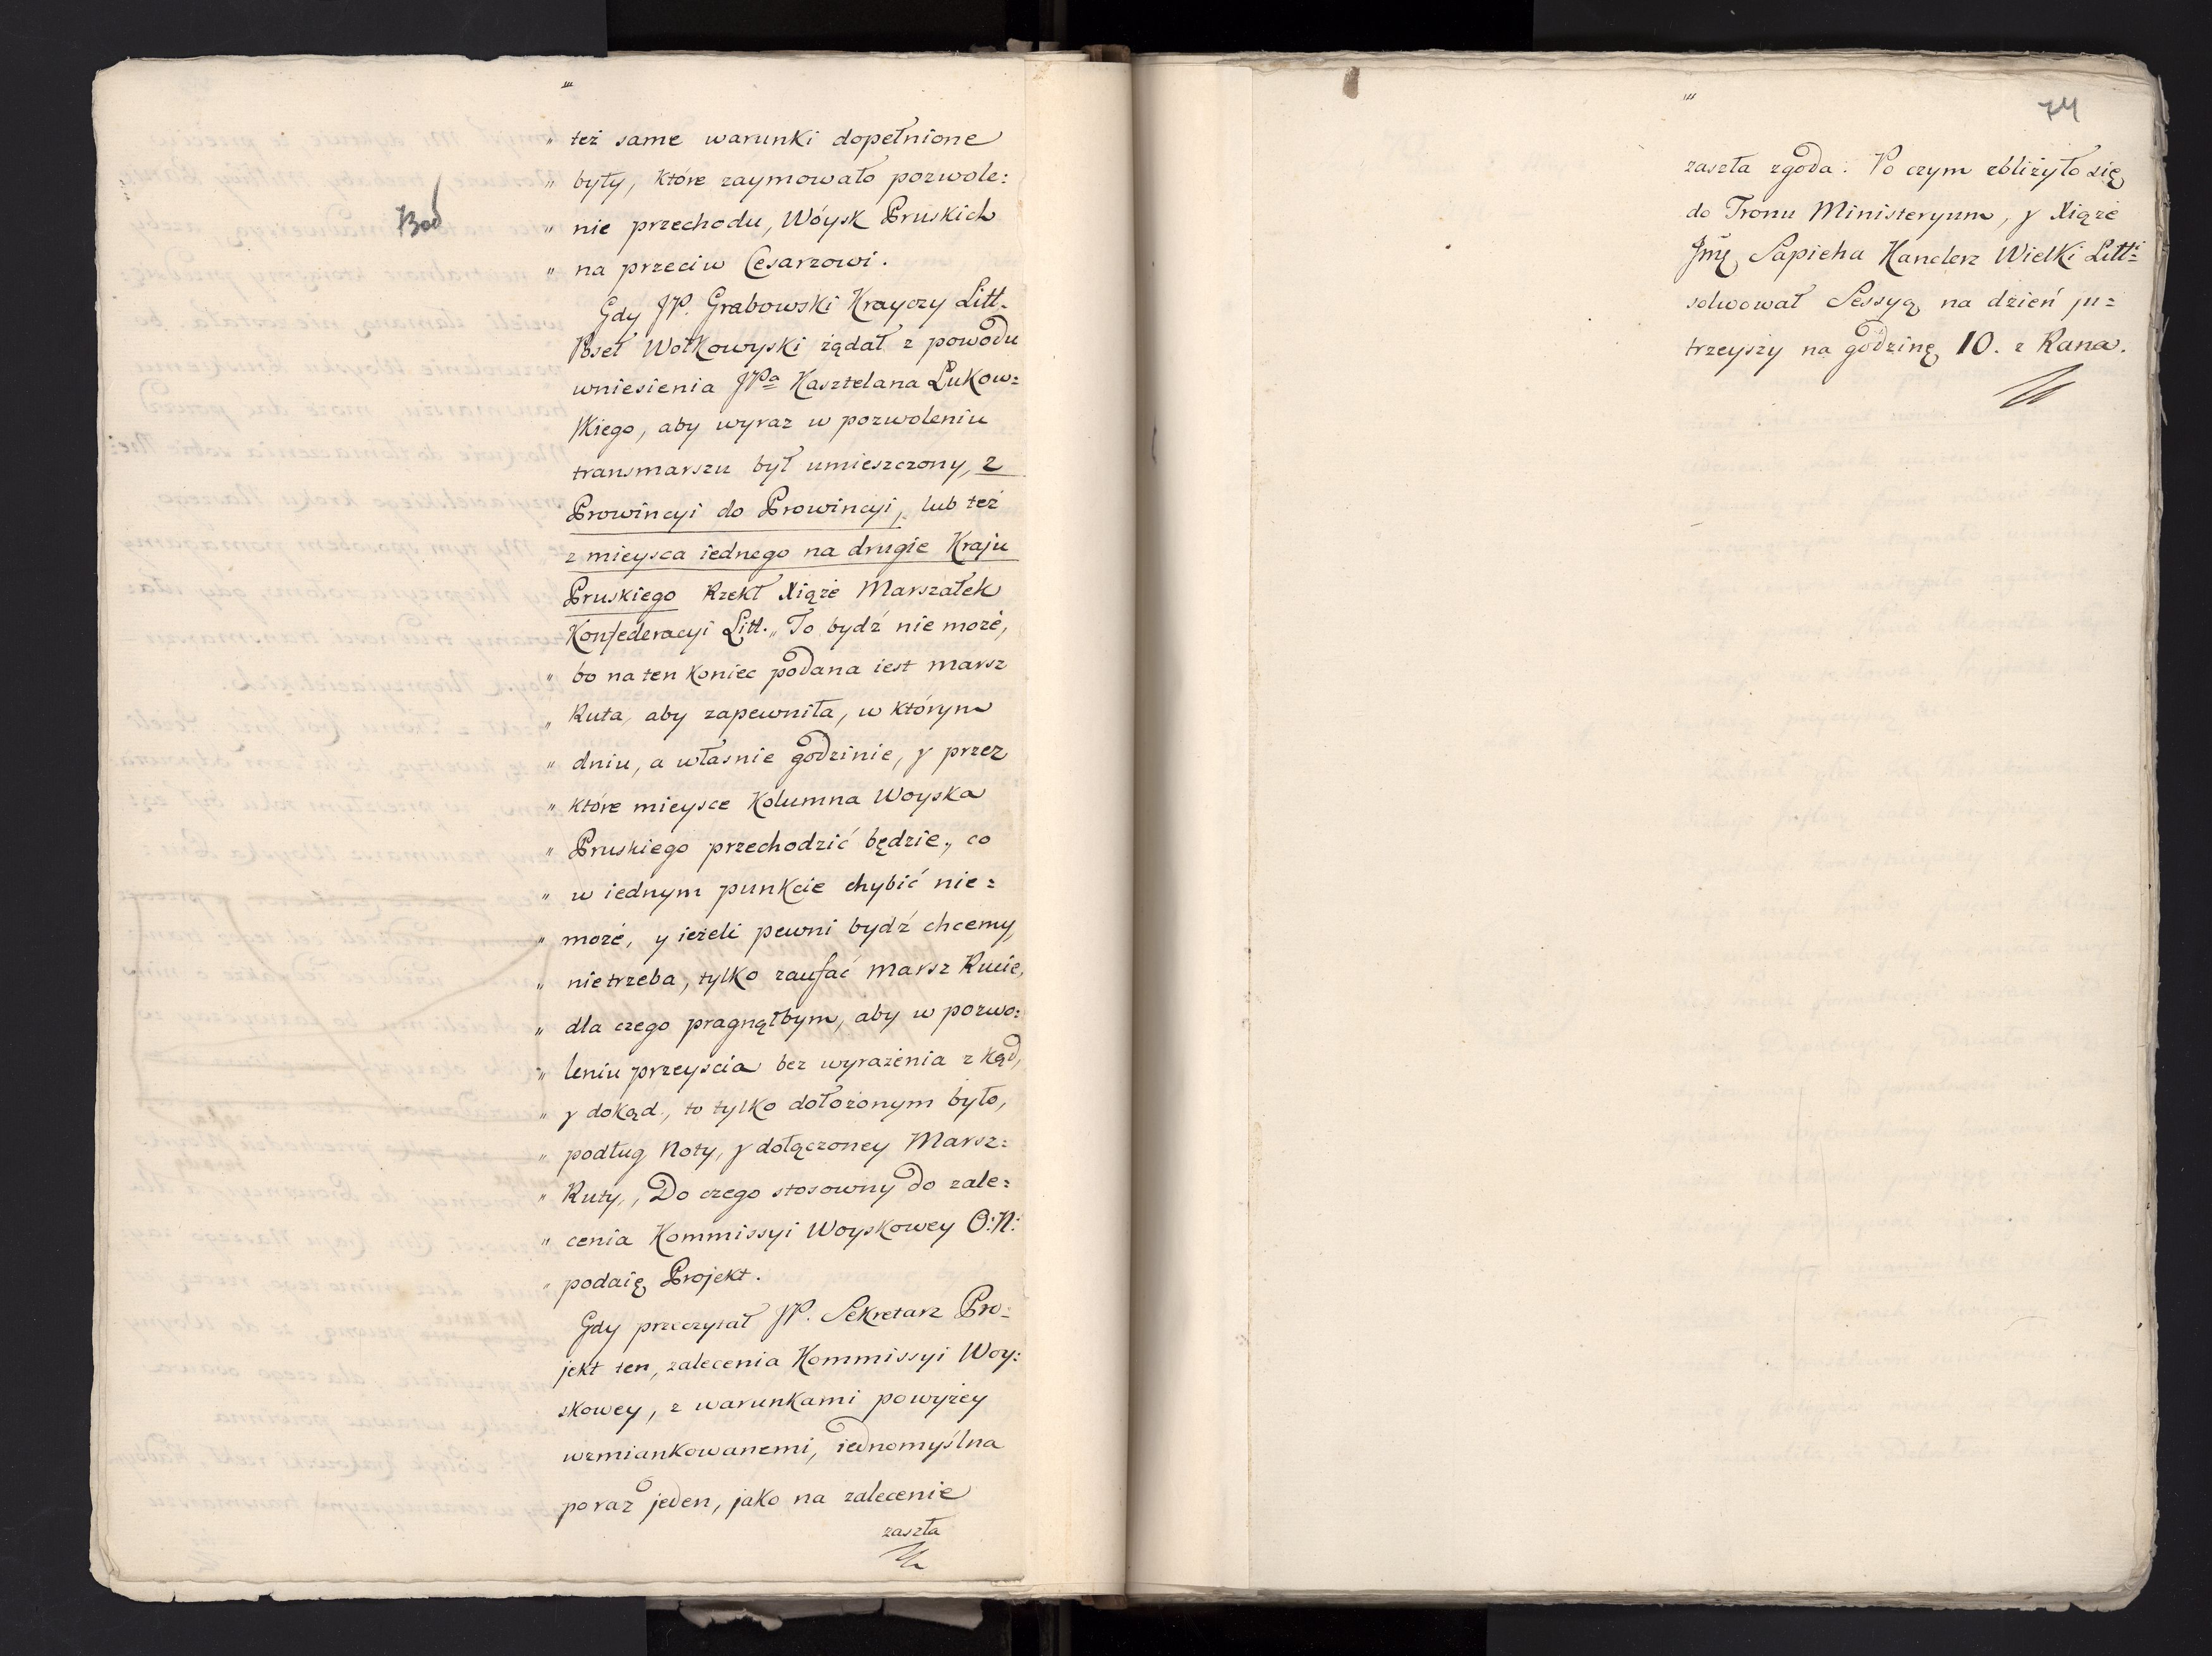 „ też same warunki dopełnione
„ były, które zaymowało pozwole:
„ nie przechodu, Wóysk Pruskich
„ na przeciw Cesarzowi.
Gdy JP. Grabowski Krayczy Litt.
Poseł Wołkowyski żądał z powodu
wniesienia JPa Kasztelana Łukow:
skiego, aby wyraz w pozwoleniu
transmarszu był umieszczony, z
Prowincyi do Prowincyi, lub też
z mieysca iednego na drugie Kraju
Pruskiego Rzekł Xiąże Marszałek
Konfederacyi Litt. „ To bydź nie może,
„ bo na ten koniec podana iest marsz
„ Ruta, aby zapewniła, w którym
„ dniu, a własnie godzinie, y przez
„ które mieysce Kolumna Woyska
„ Pruskiego przechodzić będzie, co
„ w iednym punkcie chybić nie:
„ może, y ieżeli pewni bydź chcemy,
„ nietrzeba, tylko zaufać marsz Rucie,
„ dla czego pragnąłbym, aby w pozwo:
„ leniu przeyscia bez wyrażenia z kąd,
„ y dokąd, to tylko dołożonym było,
„ podług Noty, y dołączoney Marsz:
„ Ruty, Do czego stosowny do zale:
„ cenia Kommissyi Woyskowey O: N:
„ podaię Projekt.
Gdy przeczytał JP. Sekretarz Pro:
jekt ten, zalecenia Kommissyi Woy:
skowey, z warunkami powyżey
wzmiankowanemi, iednomyślna
poraz jeden, jako na zalecenie
zaszła
74
zaszła zgoda. Po czym zbliżyło się
do Tronu Ministeryum, y Xiąże
Jmę Sapieha Kanclerz Wielki Litt:
solwował Sessyą na dzień ju:
trzeyszy na godzinę 10. z Rana.